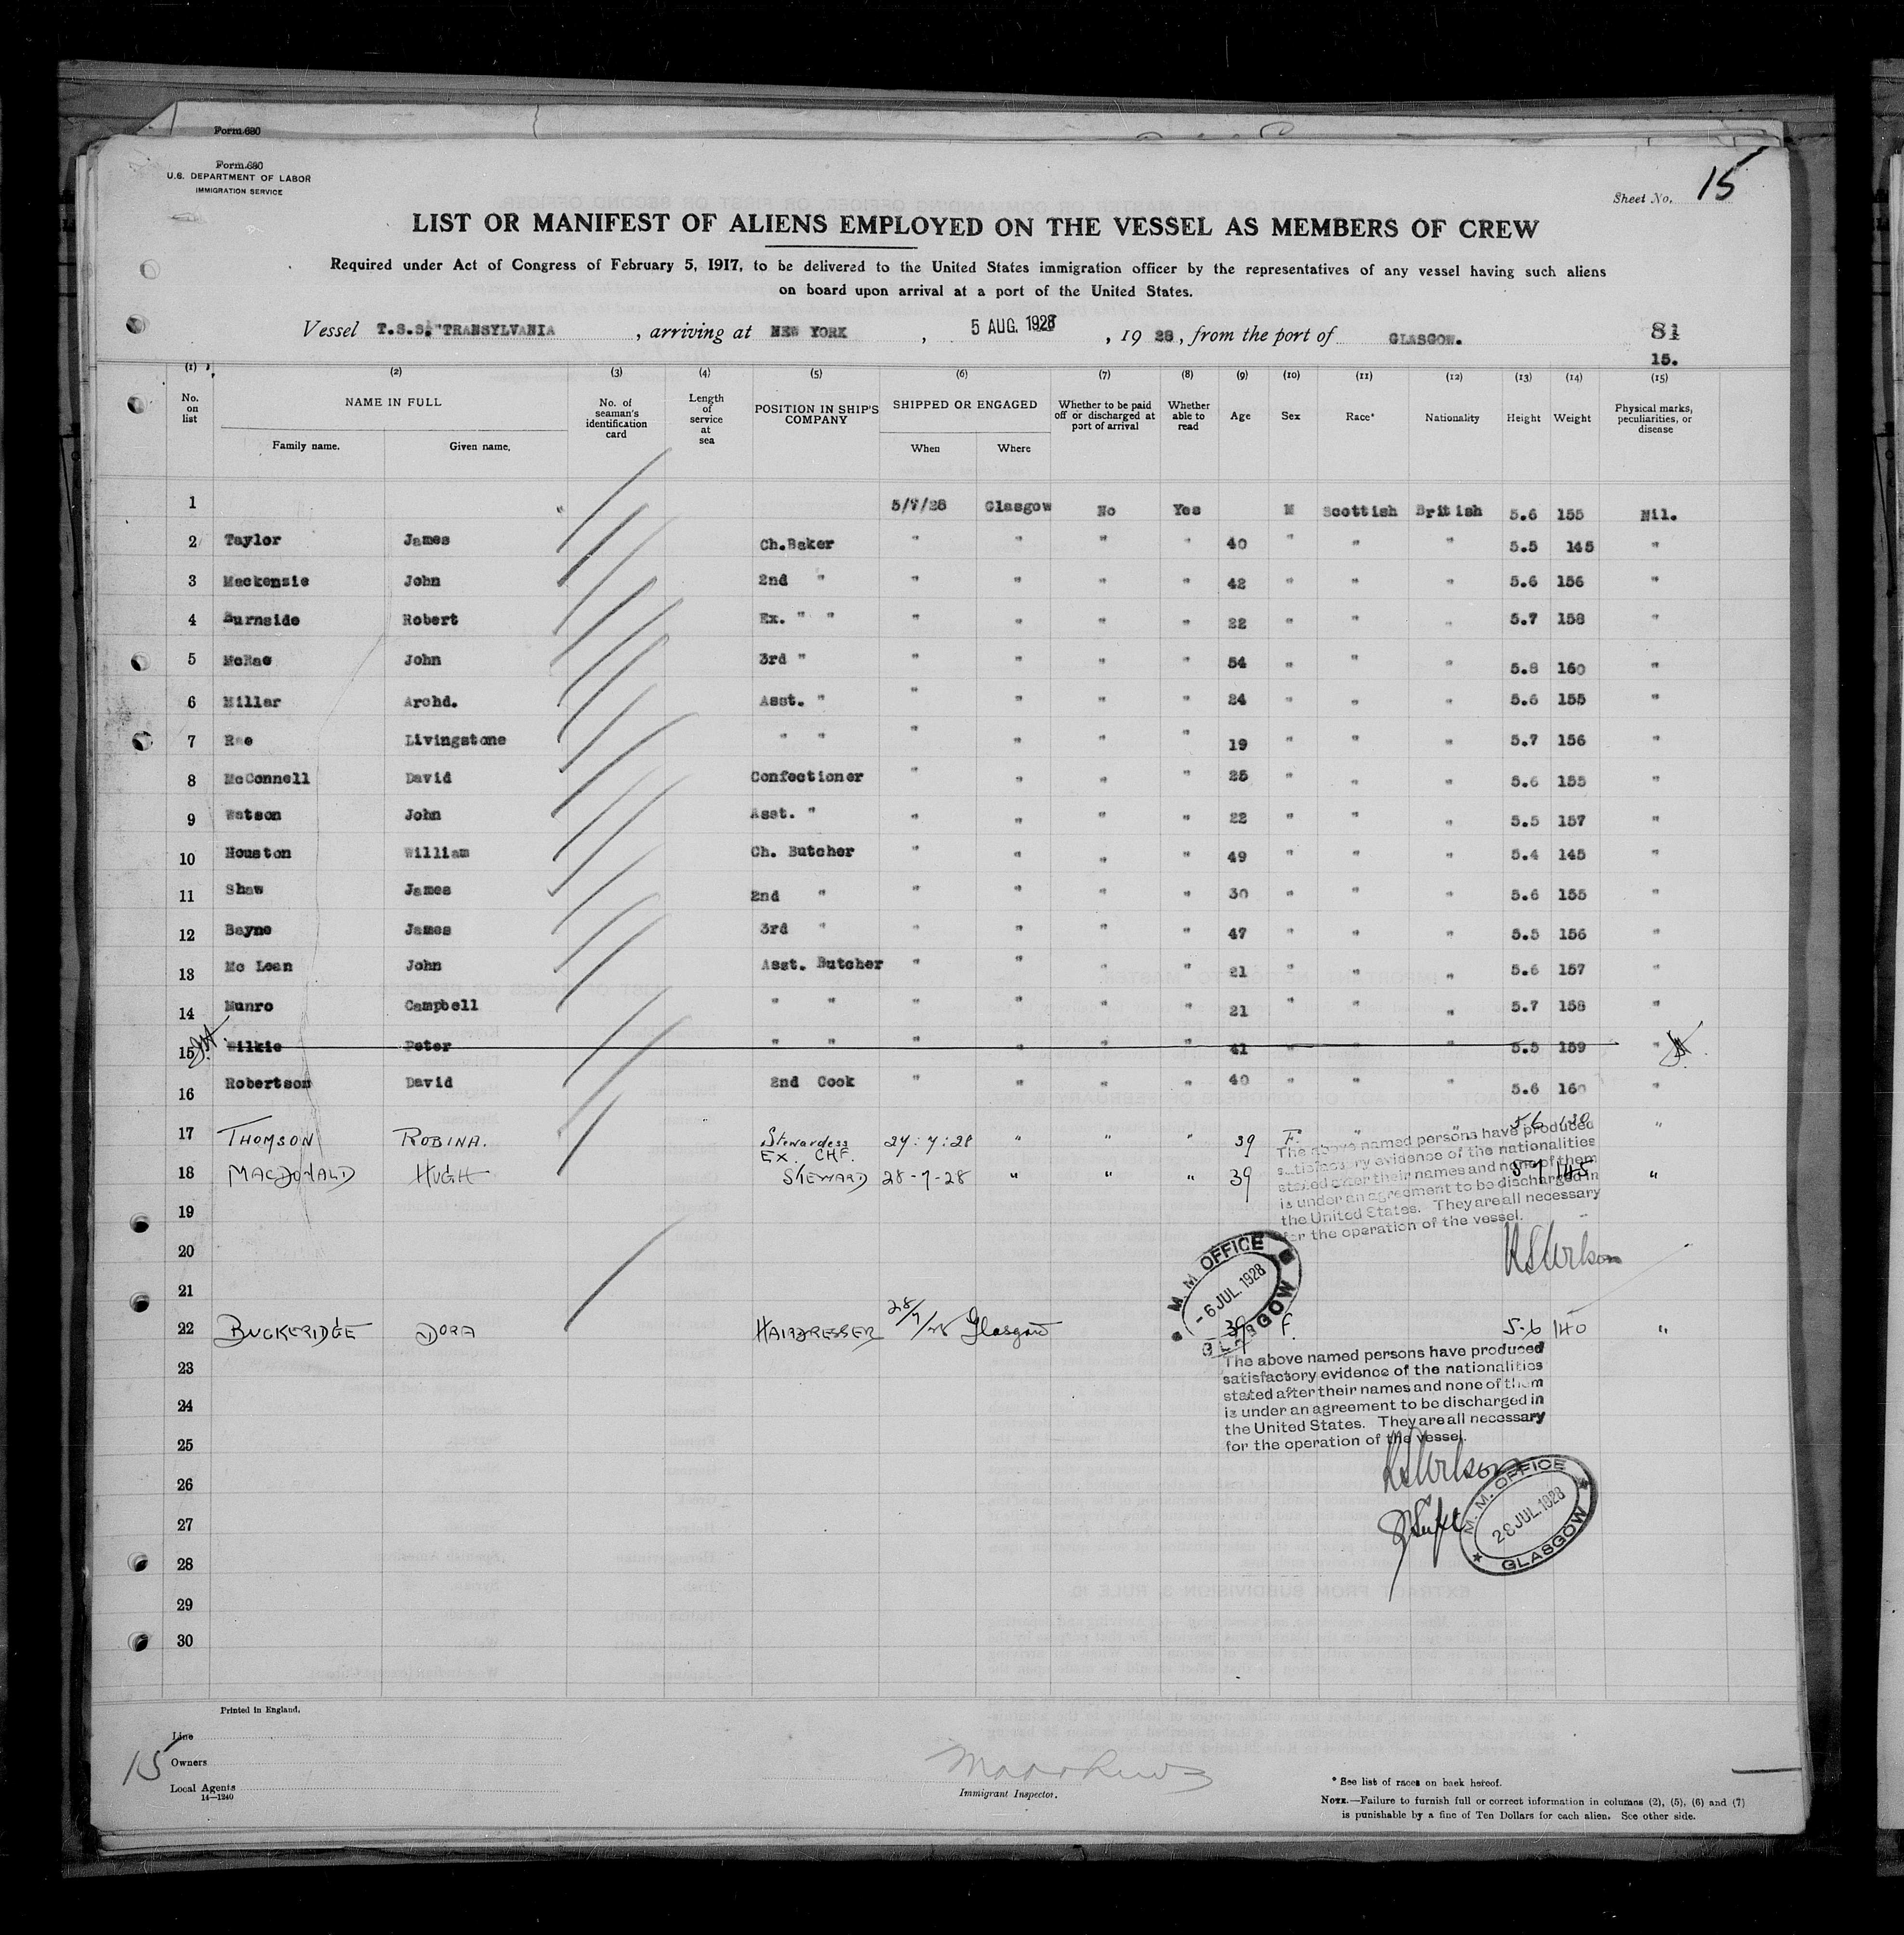 Form 680
Form 680
U.S. DEPARTMENT OF LABOR
IMMIGRATION SERVICE
Sheet No. 15
LIST OR MANIFEST OF ALIENS EMPLOYED ON THE VESSEL AS MEMBERS OF CREW
Required under Act of Congress of February 5, 1917, to be delivered to the United States immigration officer by the representatives of any vessel having such aliens
on board upon arrival at a port of the United States.
Vessel T.S.S. "TRANSYLVANIA , arriving at NEW YORK , 5 AUG. 1928 , 19 28 , from the port of GLASGOW.
81
15.
(1) (2) (3) (4) (5) (6) (7) (8) (9) (10) (11) (12) (13) (14) (15)
No. on list NAME IN FULL Family name. Given name. No. of seaman's identification card Length of service at sea POSITION IN SHIP'S COMPANY SHIPPED OR ENGAGED When Where Whether to be paid off or discharged at port of arrival Whether able to read Age Sex Race* Nationality Height Weight Physical marks, peculiarities, or disease
1 5/7/28 Glasgow No Yes M Scottish British 5.6 155 Nil.
2 Taylor James Ch.Baker " " " " 40 " " " 5.5 145 "
3 Mackenzie John 2nd " " " " " 42 " " " 5.6 156 "
4 Burnside Robert Ex. " " " " " " 22 " " " 5.7 158 "
5 McRae John 3rd " " " " " 54 " " " 5.8 160 "
6 Millar Archd. Asst. " " " " " 24 " " " 5.6 155 "
7 Rae Livingstone " " " " " " 19 " " " 5.7 156 "
8 McConnell David Confectioner " " " " 25 " " " 5.6 155 "
9 Watson John Asst. " " " " " 22 " " " 5.5 157 "
10 Houston William Ch. Butcher " " " " 49 " " " 5.4 145 "
11 Shaw James 2nd " " " " " 30 " " " 5.6 155 "
12 Bayne James 3rd " " " " " 47 " " " 5.5 156 "
13 Mc Lean John Asst. Butcher " " " " 21 " " " 5.6 157 "
14 Munro Campbell " " " " " " 21 " " " 5.7 158 "
15 Wilkie Peter " " " " " " 41 " " " 5.5 159 "
16 Robertson David 2nd Cook " " " " 40 " " " 5.6 160 "
17 THOMSON ROBINA. Stewardess 27:7:28 " " " 39 F. " " 5.6 130 "
18 MACDONALD HUGH EX. CHF. STEWARD 28-7-28 " " " 39 5.7 145 "
The above named persons have produced
satisfactory evidence of the nationalities
stated after their names and none of them
is under an agreement to be discharged in
the United States. They are all necessary
for the operation of the vessel.
19
20
21
M. M. OFFICE
- 6 JUL. 1928
GLASGOW
22 BUCKERIDGE DORA HAIRDRESSER 28/7/28 Glasgow 39 F. 5.6 140 "
The above named persons have produced
satisfactory evidence of the nationalities
stated after their names and none of them
is under an agreement to be discharged in
the United States. They are all necessary
for the operation of the vessel.
23
24
25
26
27
28
29
30
M. M. OFFICE
28 JUL. 1928
GLASGOW
Printed in England.
Line
15
Owners
Local Agents
14—1240
Immigrant Inspector.
* See list of races on back hereof.
NOTE.—Failure to furnish full or correct information in columns (2), (5), (6) and (7)
is punishable by a fine of Ten Dollars for each alien. See other side.